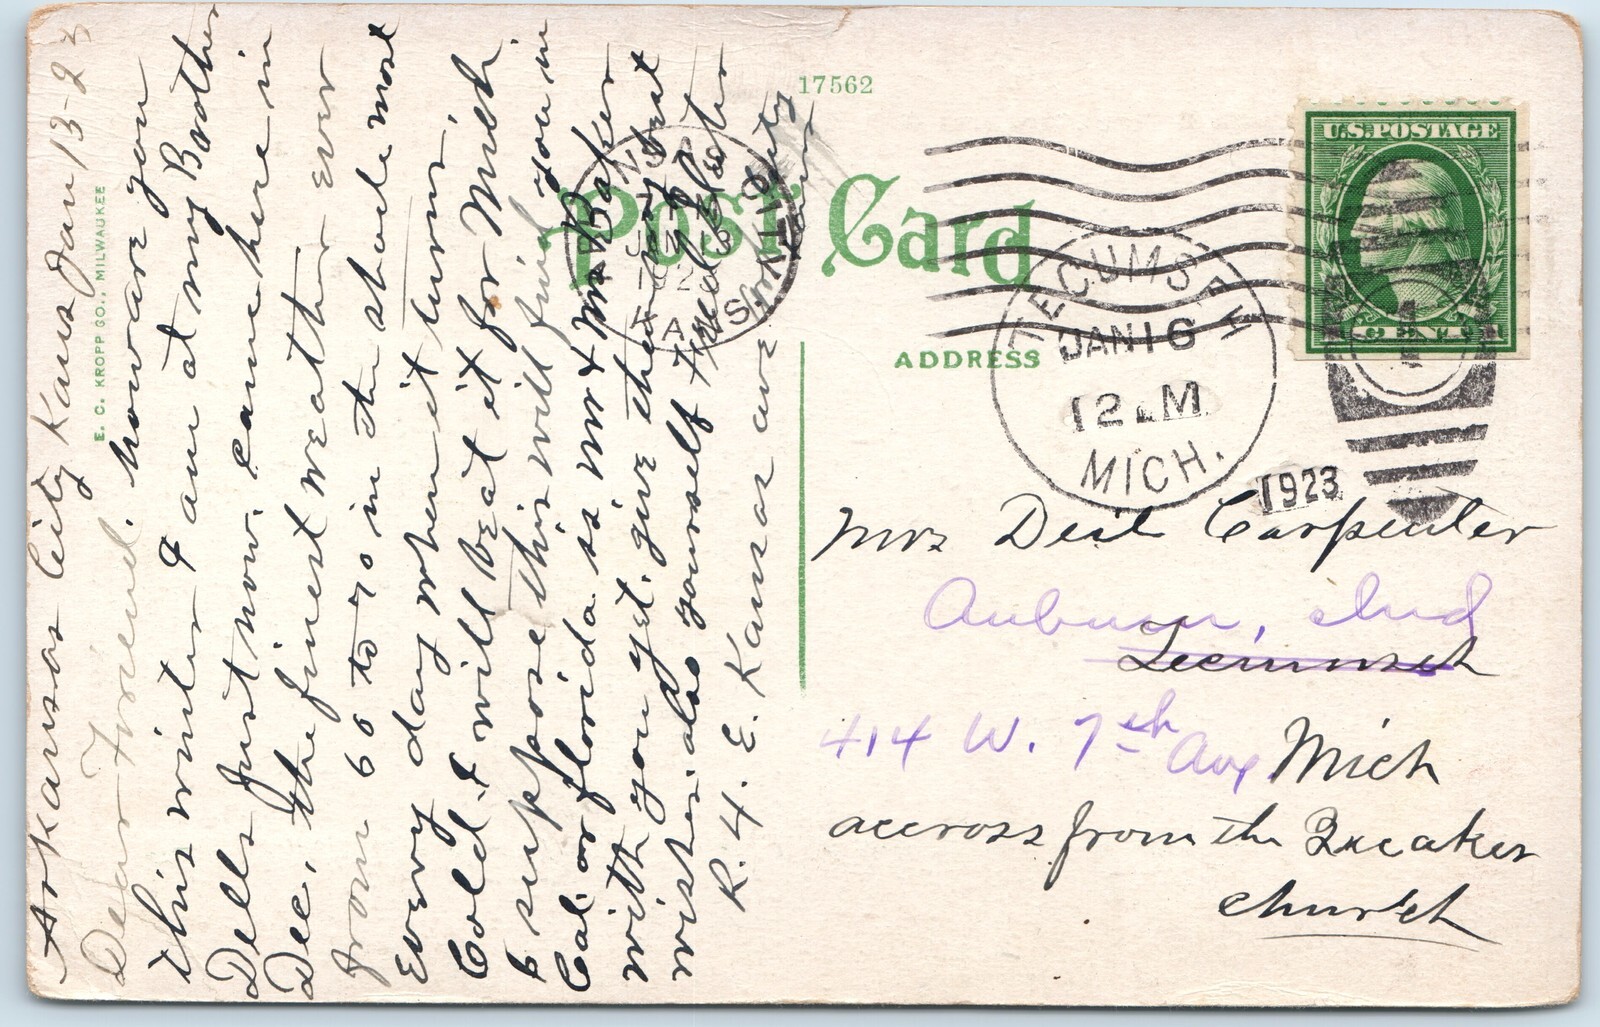 Arkansas City Kans Jan 13-23
Dear Friend. how are you
this winter I am at my Brother
Dells just now. came here in
Dec, the finest weather ever
from 60 to 70 in the shade most
every day when it turns
Cold I will beat it for Mich
I suppose this will find you in
Cal. or florida. is Mr & Mrs Baker
with you yet. give them my best
wishes. also yourself
R. H. E. Kansas ave
E. C. KROPP CO., MILWAUKEE
17562
POST CARD
ADDRESS
U.S. POSTAGE
CENT
TECUMSEH
JAN 16
12 M
MICH.
1923
Mrs Deil Carpenter
Auburn, Ind
Tecumseh
414 W. 7th Ave
Mich
accross from the Queaker
church